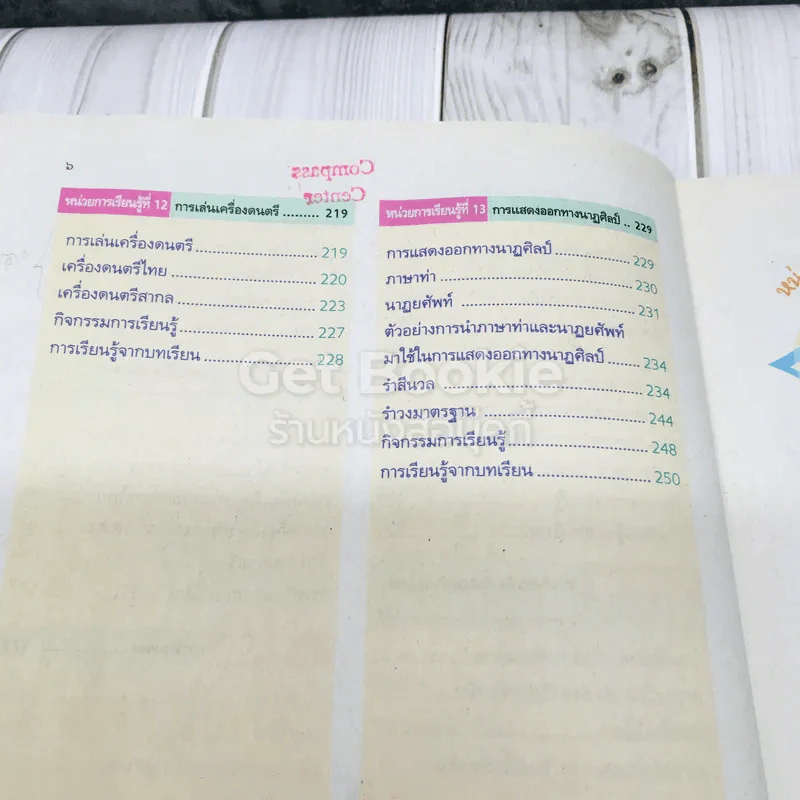 ๖
Compass
Center
หน่วยการเรียนรู้ที่ 12 การเล่นเครื่องดนตรี ......... 219
การเล่นเครื่องดนตรี ........................ 219
เครื่องดนตรีไทย ............................. 220
เครื่องดนตรีสากล ........................... 223
กิจกรรมการเรียนรู้ .......................... 227
การเรียนรู้จากบทเรียน ..................... 228
หน่วยการเรียนรู้ที่ 13 การแสดงออกทางนาฏศิลป์ .. 229
การแสดงออกทางนาฏศิลป์ ................ 229
ภาษาท่า ........................................ 230
นาฏยศัพท์ ..................................... 231
ตัวอย่างการนำภาษาท่าและนาฏยศัพท์
มาใช้ในการแสดงออกทางนาฏศิลป์ ...... 234
รำสีนวล ........................................ 234
รำวงมาตรฐาน ................................ 244
กิจกรรมการเรียนรู้ ........................... 248
การเรียนรู้จากบทเรียน ...................... 250
Get Bookie
ร้านหนังสือบุ๊คกี้